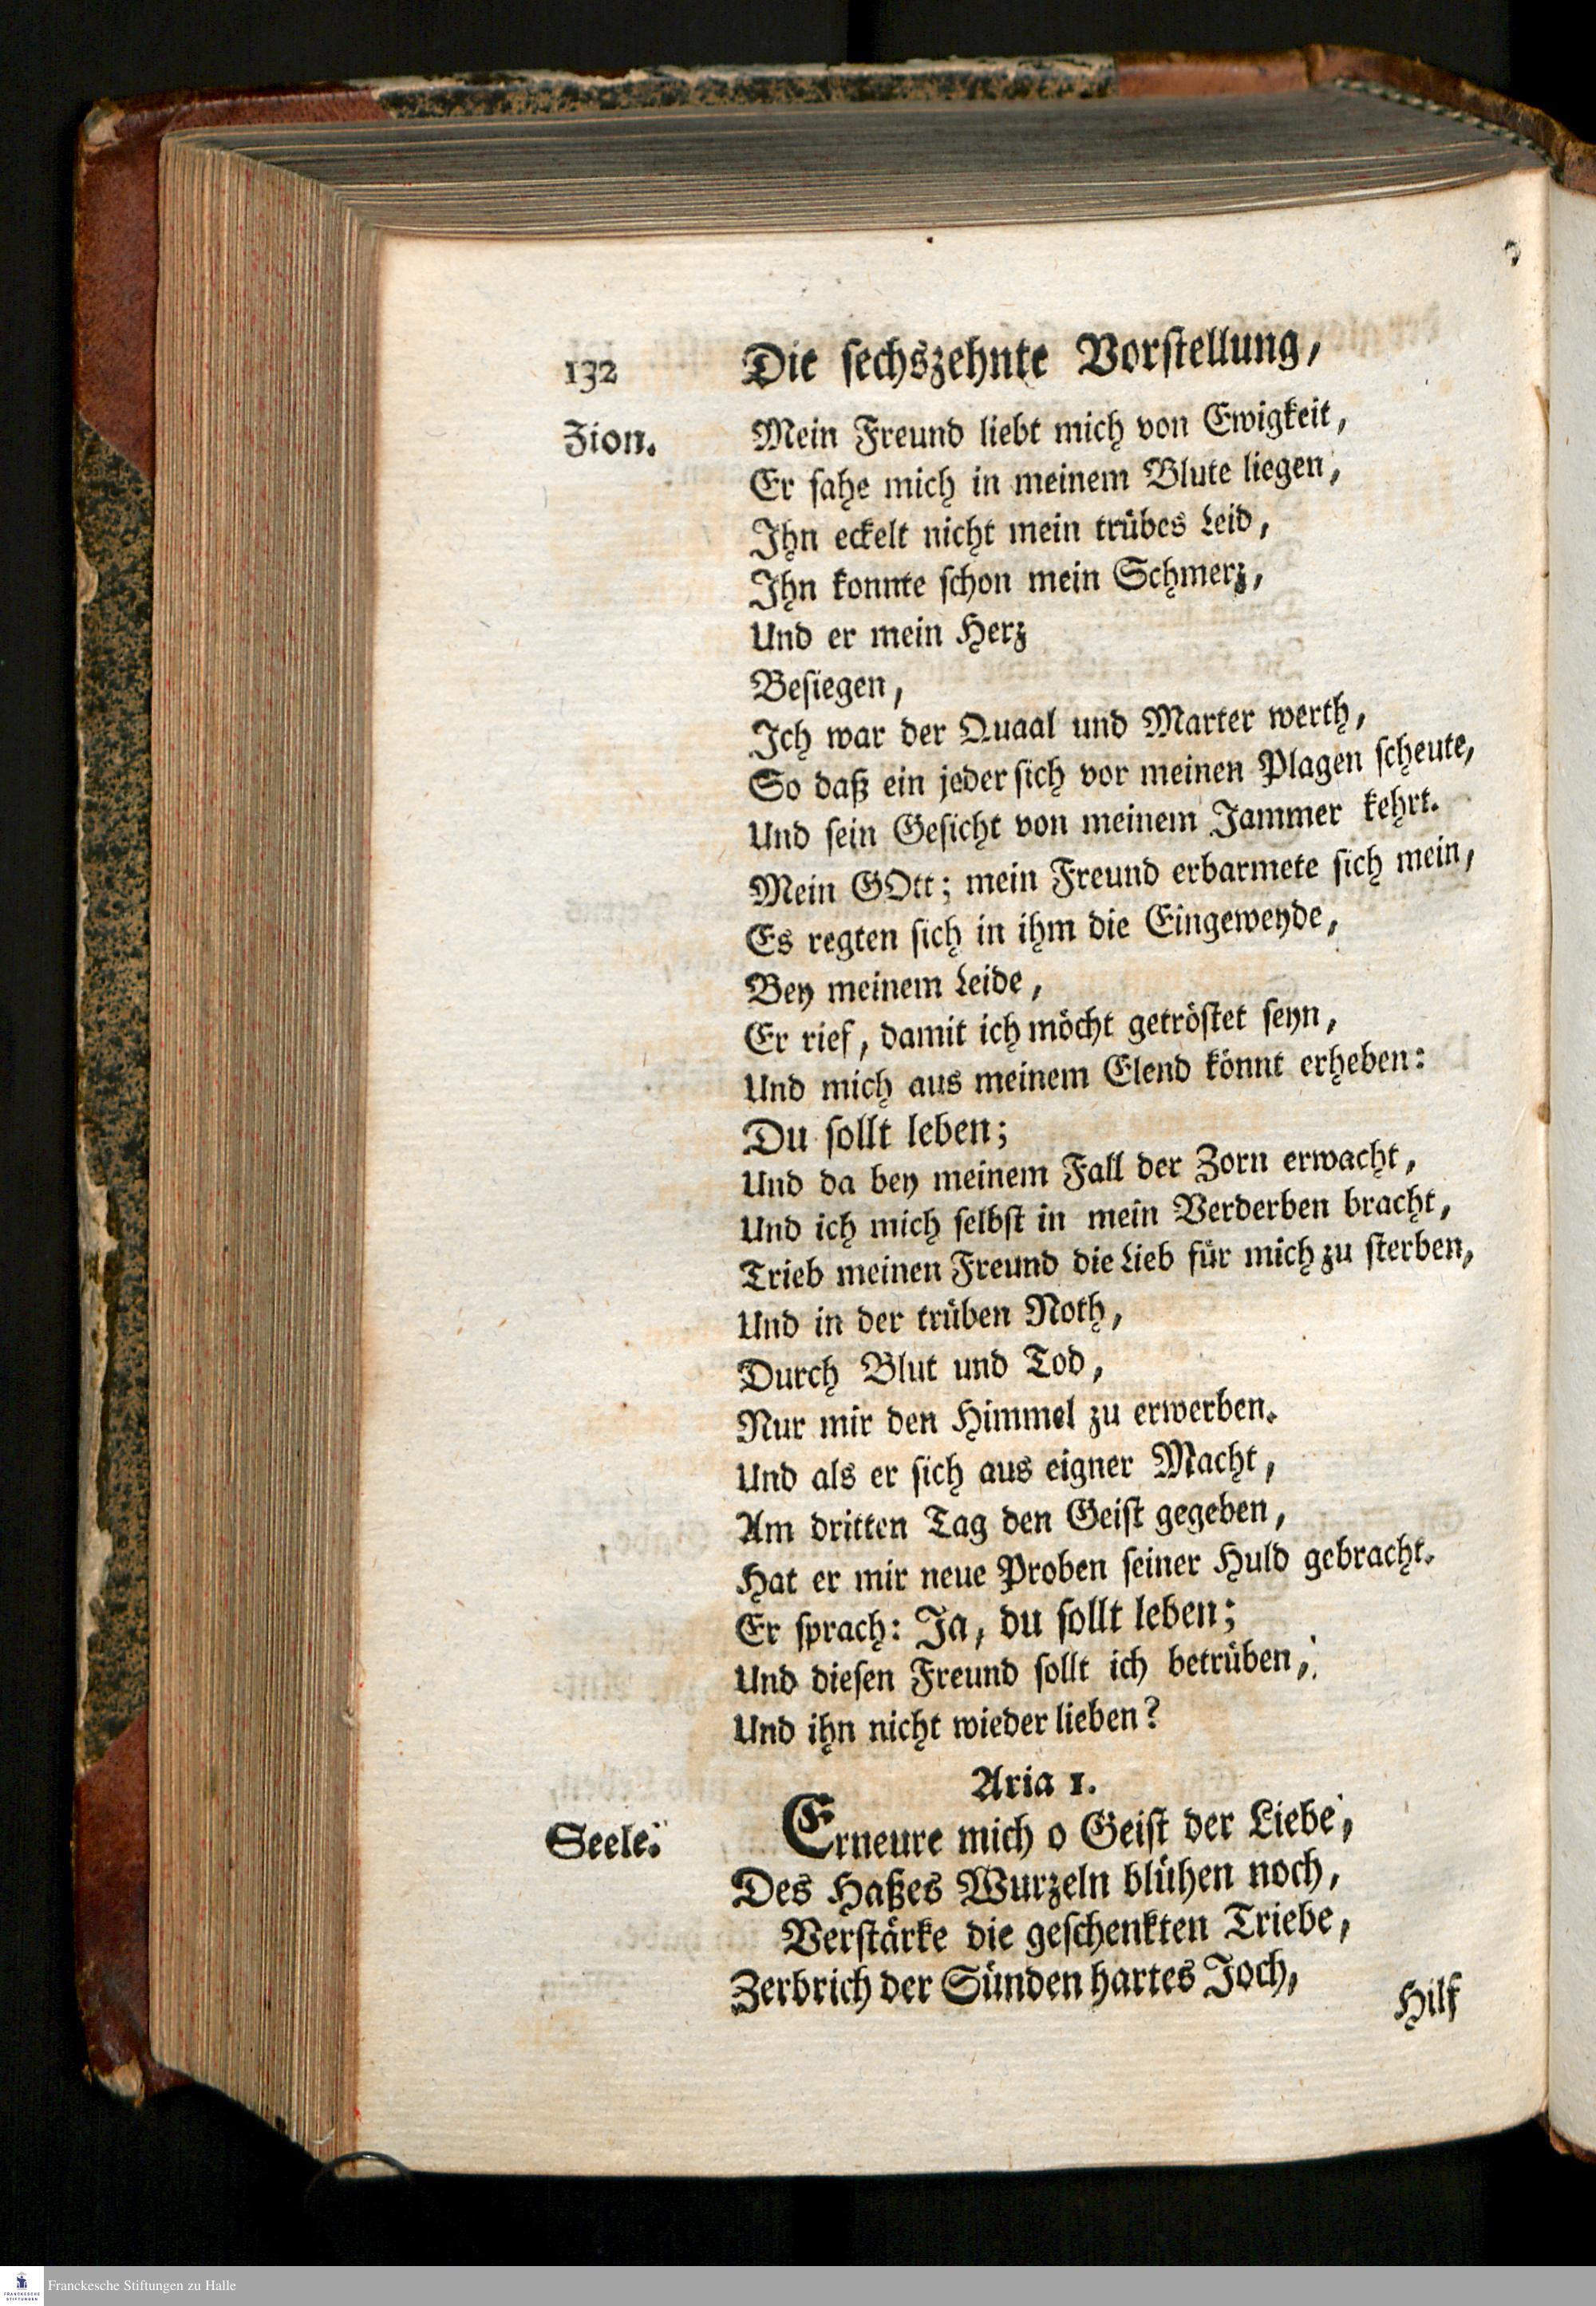 132 Die sechszehnte Vorstellung,
Zion. Mein Freund liebt mich von Ewigkeit,
Er sahe mich in meinem Blute liegen,
Ihn eckelt nicht mein trübes Leid,
Ihn konnte schon mein Schmerz,
Und er mein Herz
Besiegen,
Ich war der Quaal und Marter werth,
So daß ein jeder sich vor meinen Plagen scheute,
Und sein Gesicht von meinem Jammer kehrt.
Mein GOtt; mein Freund erbarmete sich mein,
Es regten sich in ihm die Eingeweyde,
Bey meinem Leide,
Er rief, damit ich möcht getröstet seyn,
Und mich aus meinem Elend könnt erheben:
Du sollt leben;
Und da bey meinem Fall der Zorn erwacht,
Und ich mich selbst in mein Verderben bracht,
Trieb meinen Freund die Lieb für mich zu sterben,
Und in der trüben Noth,
Durch Blut und Tod,
Nur mir den Himmel zu erwerben.
Und als er sich aus eigner Macht,
Am dritten Tag den Geist gegeben,
Hat er mir neue Proben seiner Huld gebracht.
Er sprach: Ja, du sollt leben;
Und diesen Freund sollt ich betrüben,
Und ihn nicht wieder lieben?
Aria 1.
Seele. Erneure mich o Geist der Liebe,
Des Haßes Wurzeln blühen noch,
Verstärke die geschenkten Triebe,
Zerbrich der Sünden hartes Joch,
Hilf
FRANCKESCHE
STIFTUNGEN
Franckesche Stiftungen zu Halle